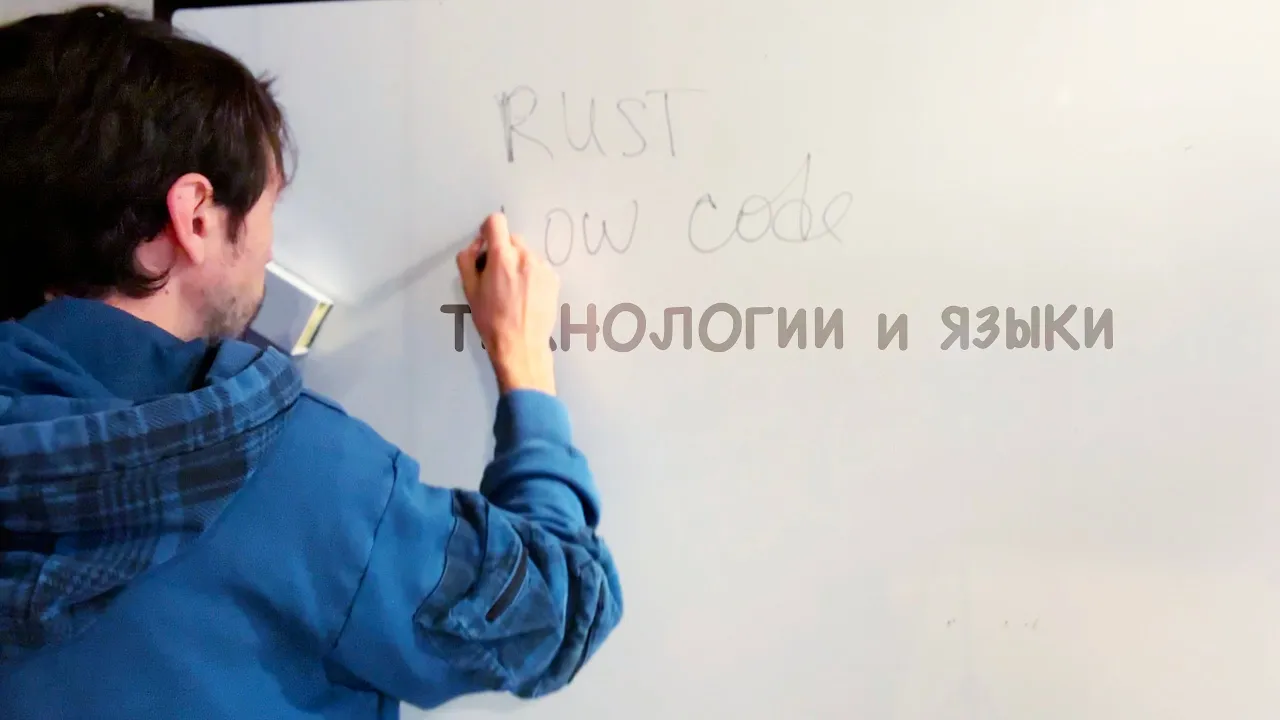 RUST
Low code
ТЕХНОЛОГИИ и языки